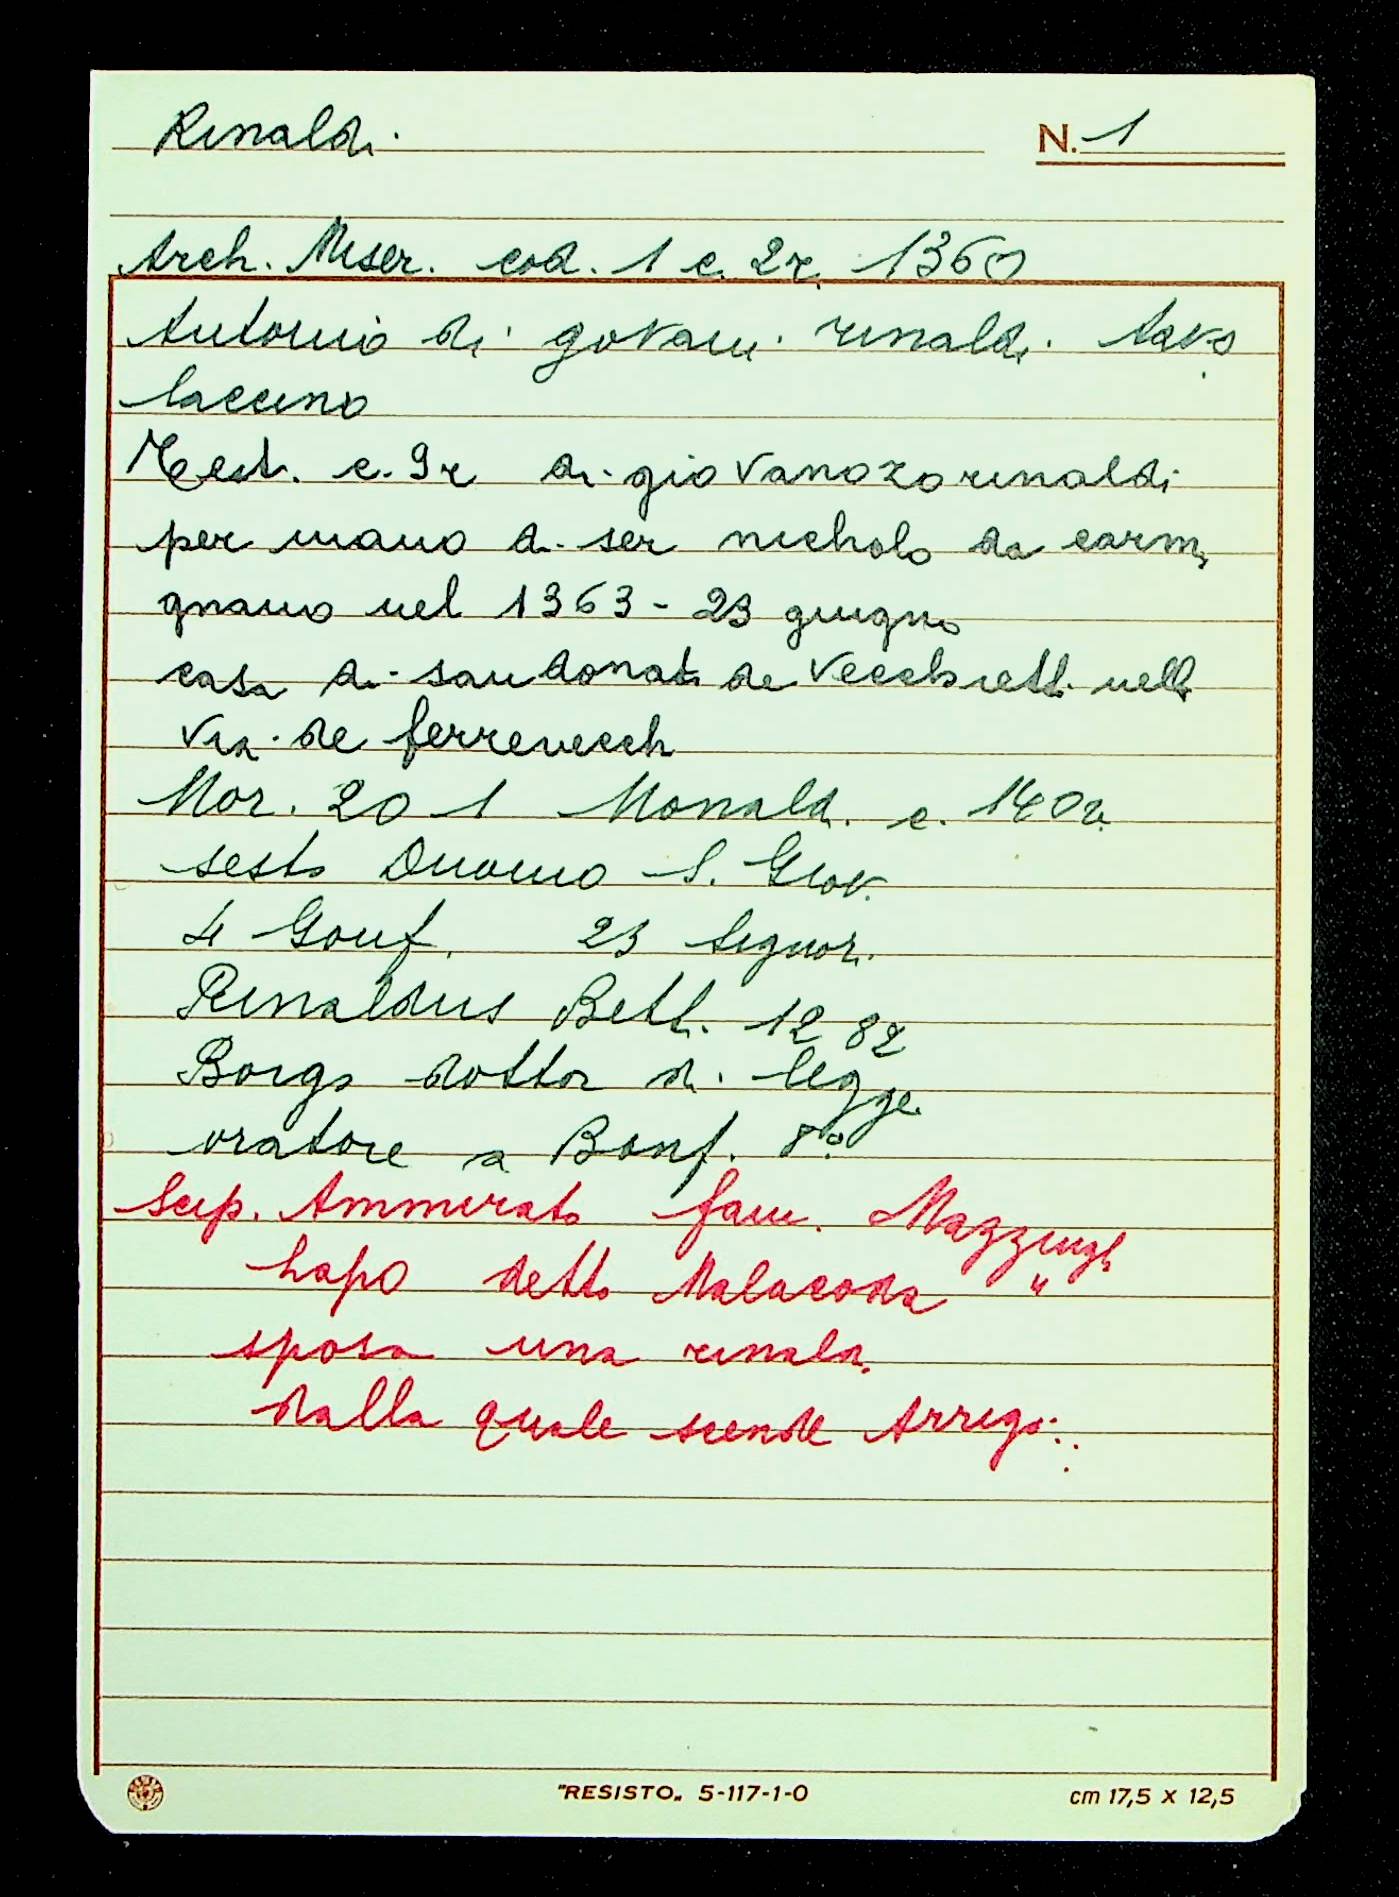 Rinaldi
N. 1
Arch. Miser. cod. 1 c. 2r 1360
Antonio di govani rinaldi tavo
laccino
Test. c. 9r di giovanozo rinaldi
per mano di ser nicholo da carmi
gnano nel 1363 - 23 giugno
casa di san donato de vecchietti nella
via de ferrevecchi
Mor. 201 Monald. c. 140v.
sesto Duomo S. Giov.
4 Gonf. 23 Signor.
Rinaldus Bett. 1282
Borgo dottor di legge
oratore a Bonif. 8º
Scip. Ammirato fam. Mazzinghi
Lapo detto Malacoda "
sposa una rinaldi
dalla quale scende Arrigo
"RESISTO„ 5-117-1-0
cm 17,5 x 12,5